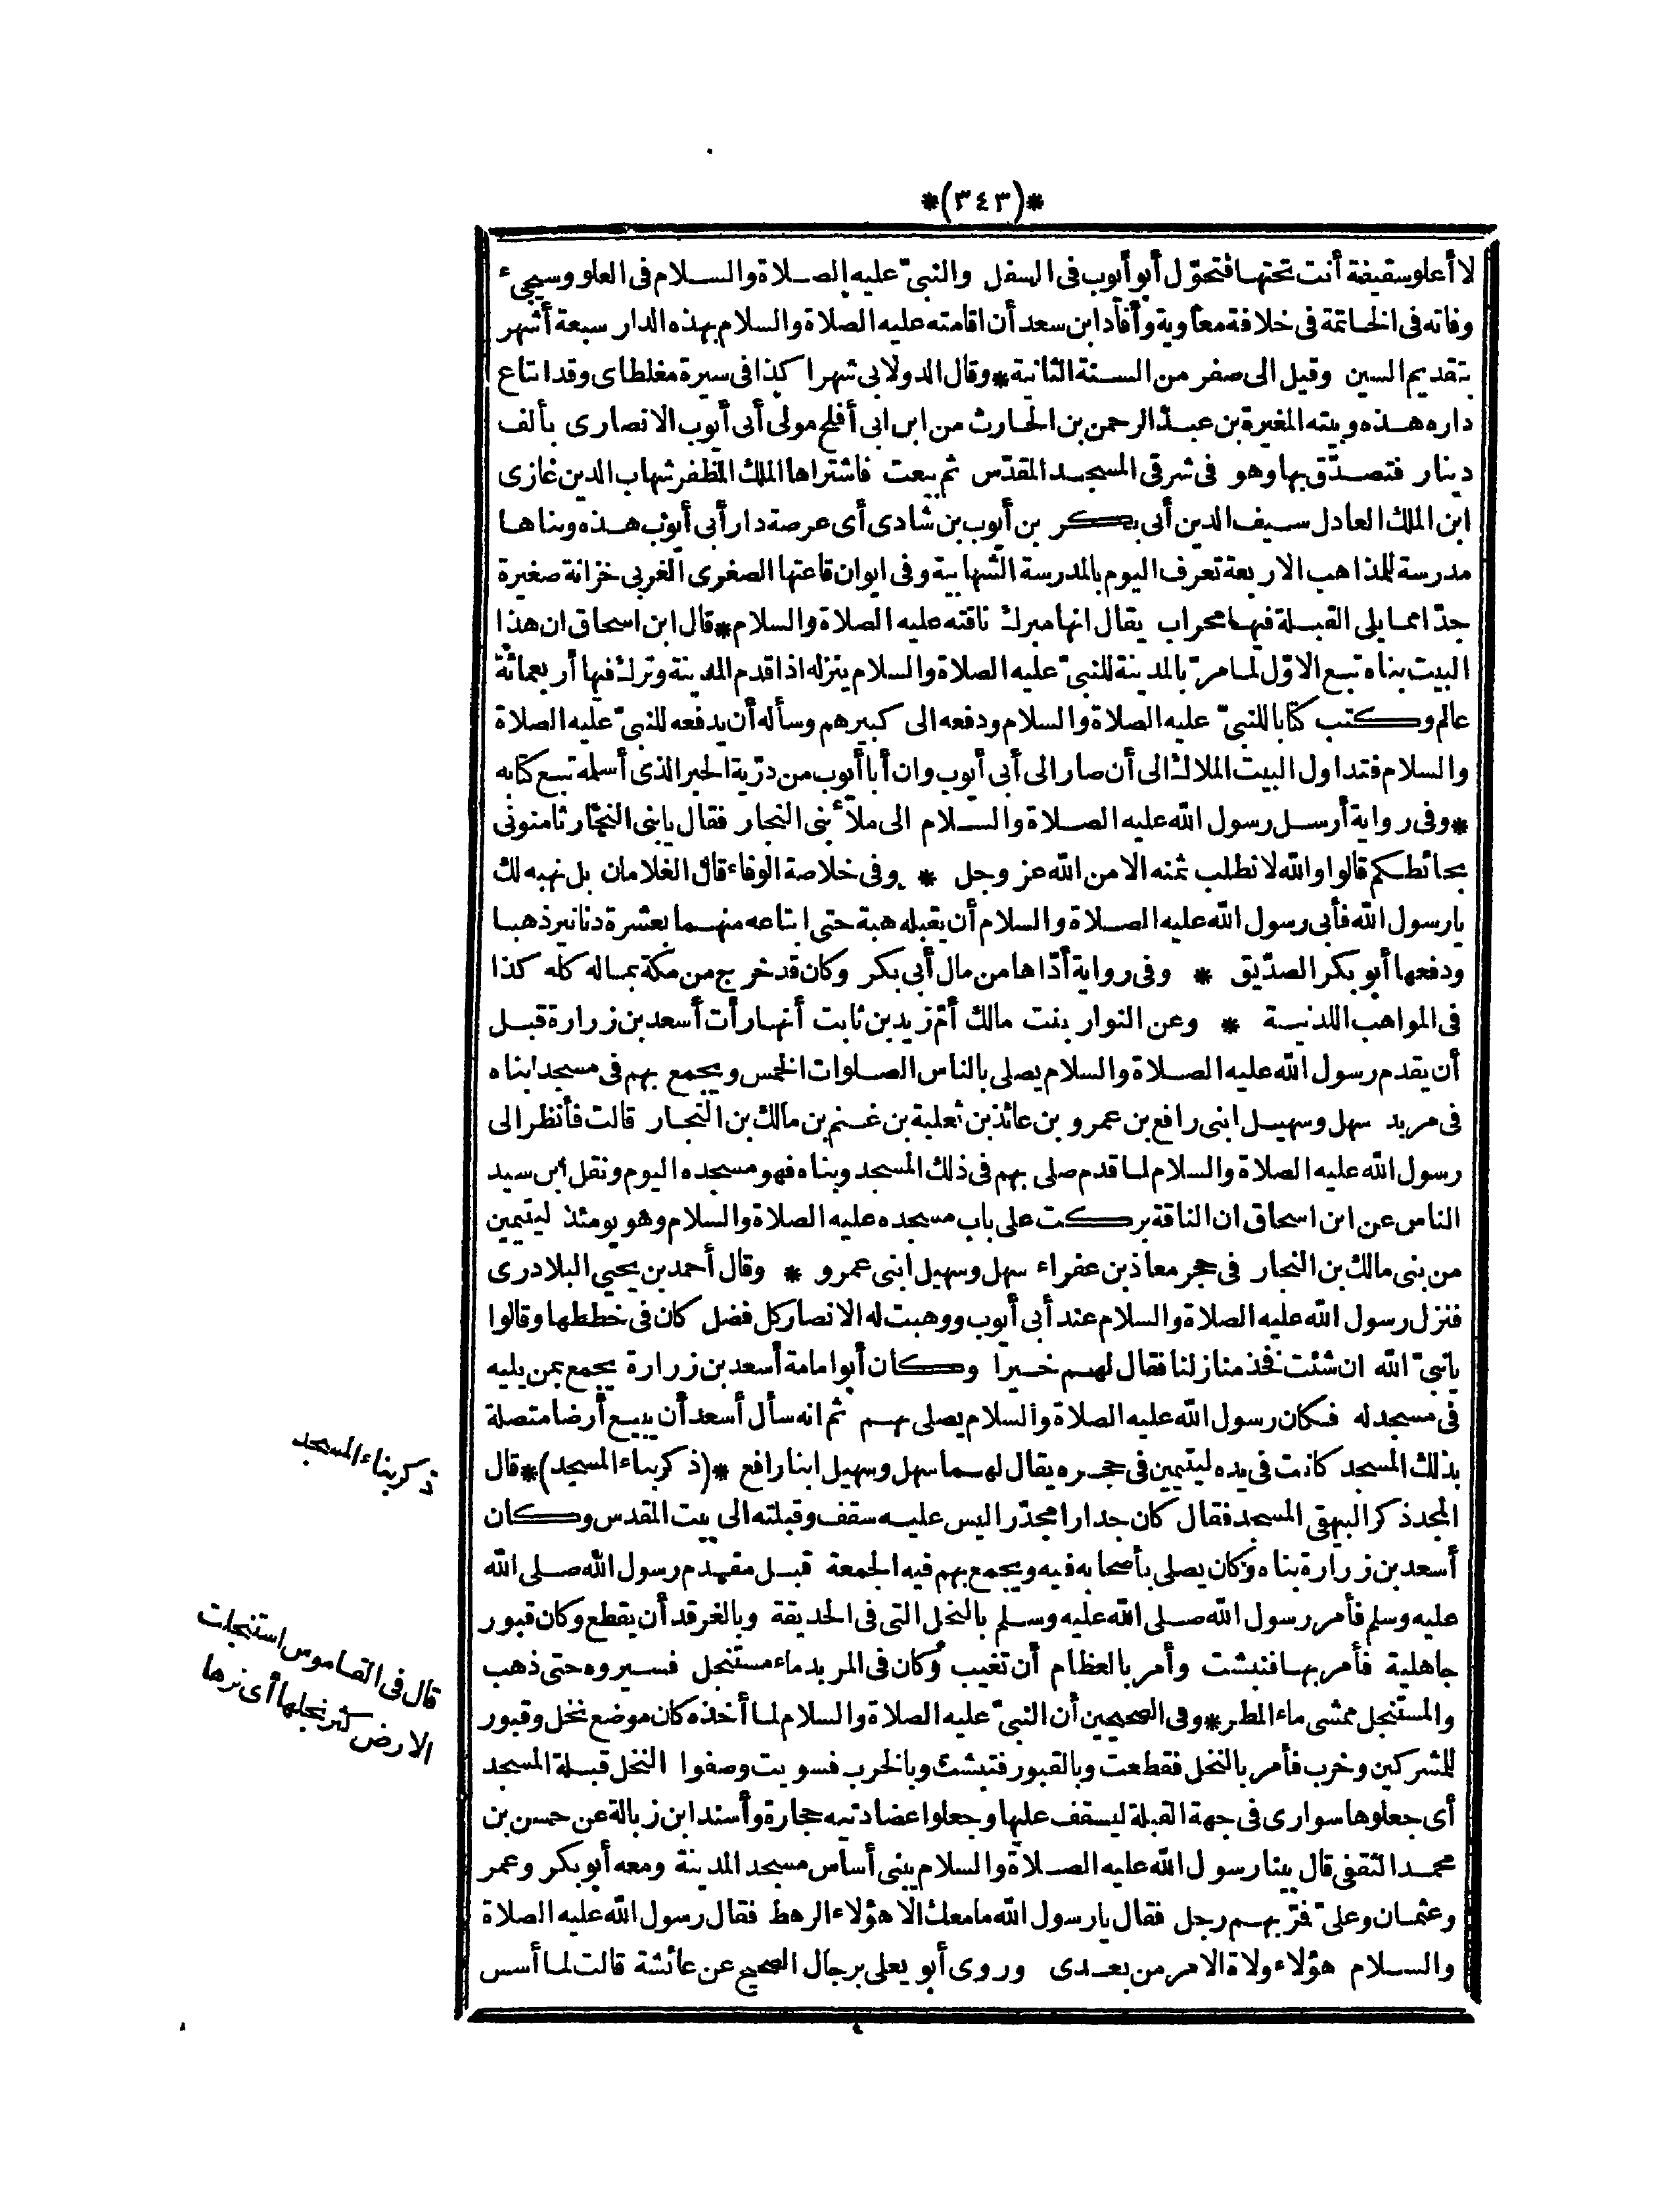 *(٣٤٣)*
لا أعلو سقيفة أنت تحتها فتحوّل أبو أيوب فى السفل والنبىّ عليه الصلاة والسلام فى العلو وسيجىء
وفاته فى الخاتمة فى خلافة معاوية وأفاد ابن سعد أن اقامته عليه الصلاة والسلام بهذه الدار سبعة أشهر
بتقديم السين وقيل الى صفر من السنة الثانية * وقال الدولابى شهرا كذا فى سيرة مغلطاى وقد ابتاع
داره هذه وبيته المغيرة بن عبد الرحمن بن الحارث من ابن ابى أفلح مولى أبى أيوب الانصارى بألف
دينار فتصدّق بها وهو فى شرقى المسجد المقدّس ثم بيعت فاشتراها الملك المظفر شهاب الدين غازى
ابن الملك العادل سيف الدين أبى بكر بن أيوب بن شادى أى عرصة دار أبى أيوب هذه وبناها
مدرسة للمذاهب الاربعة تعرف اليوم بالمدرسة الشهابية وفى ايوان قاعتها الصغرى الغربى خزانة صغيرة
جدّا مما يلى القبلة فيها محراب يقال انها مبرك ناقته عليه الصلاة والسلام * قال ابن اسحاق ان هذا
البيت بناه تبع الاوّل لما مرّ بالمدينة للنبىّ عليه الصلاة والسلام ينزله اذا قدم المدينة وترك فيها أربعمائة
عالم وكتب كتابا للنبىّ عليه الصلاة والسلام ودفعه الى كبيرهم وسأله أن يدفعه للنبىّ عليه الصلاة
والسلام فتداول البيت الملاك الى أن صار الى أبى أيوب وان أبا أيوب من ذرّية الحبر الذى أسلمه تبع كتابه
* وفى رواية أرسل رسول الله عليه الصلاة والسلام الى ملأ بنى النجار فقال يا بنى النجّار ثامنونى
بحائطكم قالوا والله لا نطلب ثمنه الا من الله عز وجل * وفى خلاصة الوفاء قال الغلامان بل نهبه لك
يا رسول الله فأبى رسول الله عليه الصلاة والسلام أن يقبله هبة حتى ابتاعه منهما بعشرة دنانير ذهبا
ودفعها أبو بكر الصدّيق * وفى رواية أدّاها من مال أبى بكر وكان قد خرج من مكة بماله كله كذا
فى المواهب اللدنية * وعن النوار بنت مالك أمّ زيد بن ثابت أنها رأت أسعد بن زرارة قبل
أن يقدم رسول الله عليه الصلاة والسلام يصلى بالناس الصلوات الخمس ويجمع بهم فى مسجد ابناه
فى مربد سهل وسهيل ابنى رافع بن عمرو بن عائذ بن ثعلبة بن غنم بن مالك بن النجار قالت فأنظر الى
رسول الله عليه الصلاة والسلام لما قدم صلى بهم فى ذلك المسجد وبناه فهو مسجده اليوم ونقل ابن سيد
الناس عن ابن اسحاق ان الناقة بركت على باب مسجده عليه الصلاة والسلام وهو يومئذ ليتيمين
من بنى مالك بن النجار فى حجر معاذ بن عفراء سهل وسهيل ابنى عمرو * وقال أحمد بن يحيى البلادرى
فنزل رسول الله عليه الصلاة والسلام عند أبى أيوب ووهبت له الانصار كل فضل كان فى خططها وقالوا
يا نبىّ الله ان شئت فخذ منازلنا فقال لهم خيرا وكان أبو امامة أسعد بن زرارة يجمع بمن يليه
فى مسجد له فكان رسول الله عليه الصلاة والسلام يصلى بهم ثم انه سأل أسعد أن يبيع أرضا متصلة
بذلك المسجد كانت فى يده ليتيمين فى حجره يقال لهما سهل وسهيل ابنا رافع *(ذكر بناء المسجد)* قال
المجد ذكر البيهقى المسجد فقال كان جدارا مجدّرا ليس عليه سقف وقبلته الى بيت المقدس وكان
أسعد بن زرارة بناه وكان يصلى بأصحابه فيه ويجمع بهم فيه الجمعة قبل مقدم رسول الله صلى الله
عليه وسلم فأمر رسول الله صلى الله عليه وسلم بالنخل التى فى الحديقة وبالغرقد أن يقطع وكان قبور
جاهلية فأمر بها فنبشت وأمر بالعظام أن تغيب وكان فى المربد ماء مستنجل فسيروه حتى ذهب
والمستنجل ممشى ماء المطر * وفى الصحيحين أن النبىّ عليه الصلاة والسلام لما أخذه كان موضع نخل وقبور
للمشركين وخرب فأمر بالنخل فقطعت وبالقبور فنبشت وبالخرب فسويت وصفوا النخل قبلة المسجد
أى جعلوها سوارى فى جهة القبلة ليسقف عليها وجعلوا عضادتيه حجارة وأسند ابن زبالة عن حسن بن
محمد الثقفى قال بينا رسول الله عليه الصلاة والسلام يبنى أساس مسجد المدينة ومعه أبو بكر وعمر
وعثمان وعلىّ فمرّ بهم رجل فقال يا رسول الله ما معك الا هؤلاء الرهط فقال رسول الله عليه الصلاة
والسلام هؤلاء ولاة الامر من بعدى وروى أبو يعلى برجال الصحيح عن عائشة قالت لما أسس
ذكر بناء المسجد
قال فى القاموس استنجلت
الارض كثر نجلها أى نزها